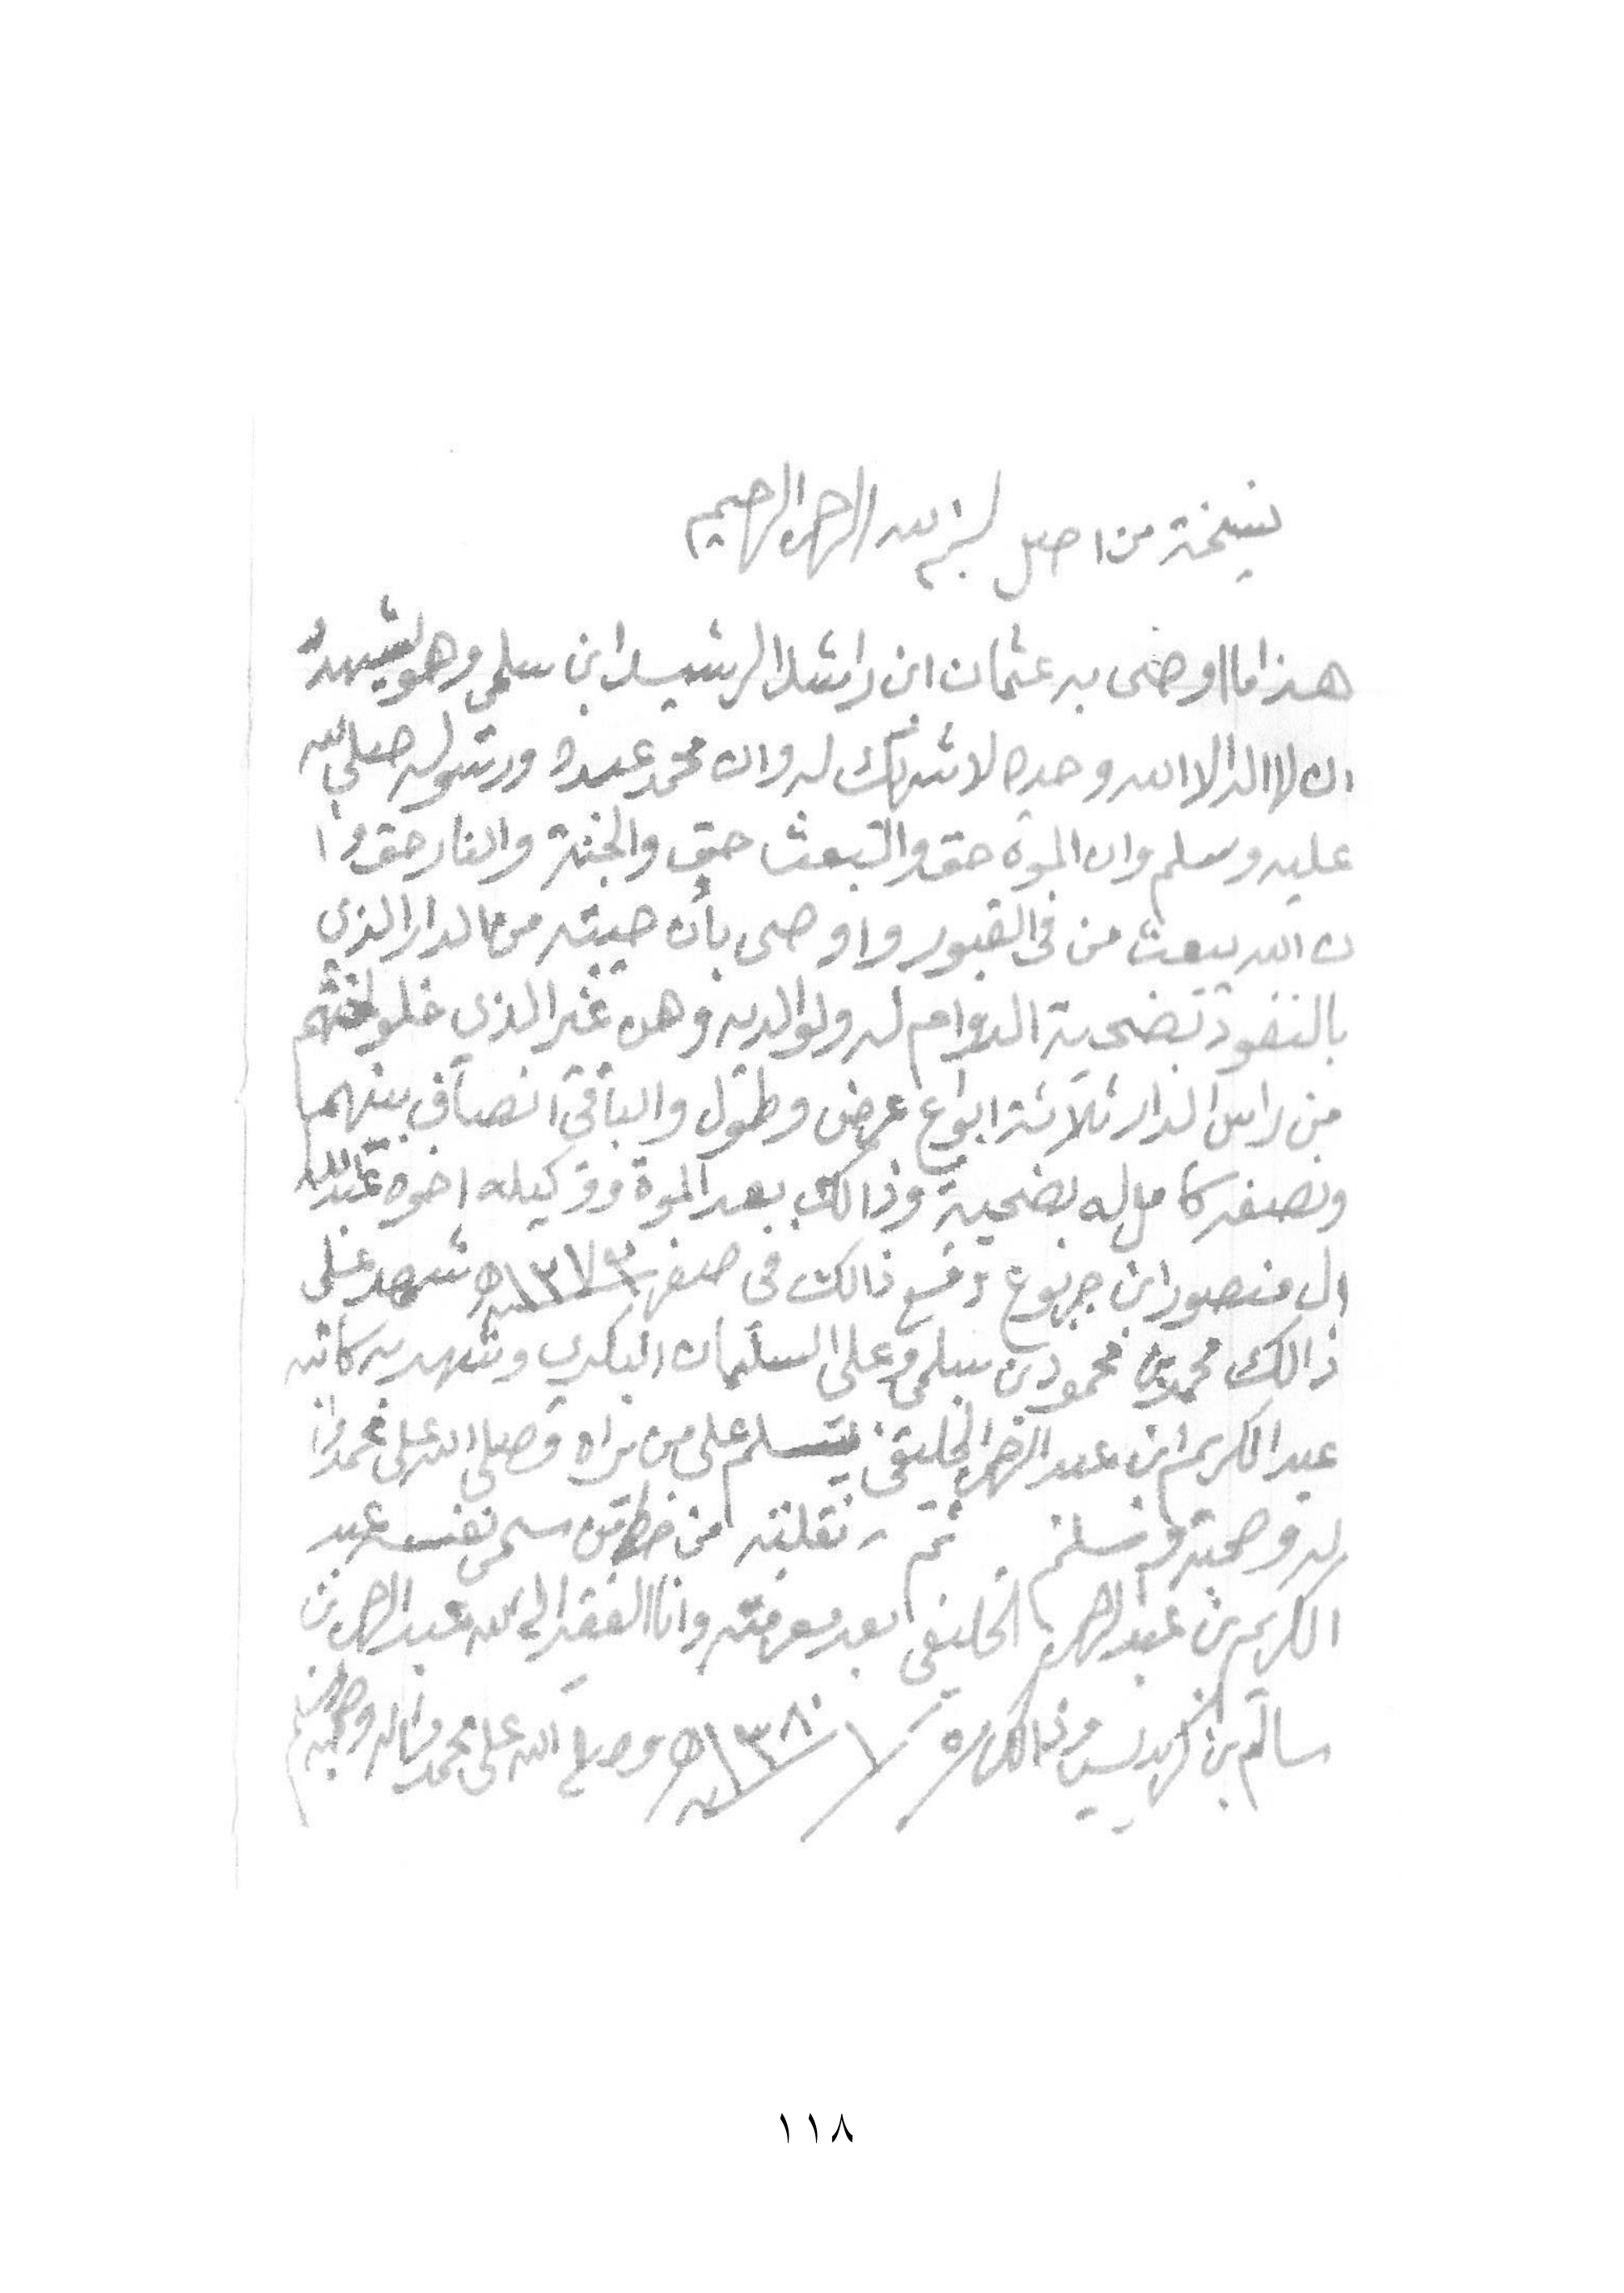 نسخة من اصل بسم الله الرحمن الرحيم
هذا ما اوصى به عثمان ابن راشد الرشيد ابن سلمي وهو يشهد
ان لا اله الا الله وحده لا شريك له وان محمد عبده ورسوله صلى الله
عليه وسلم وان الموة حق والبعث حق والجنة والنار حق وا
ن الله يبعث من في القبور واوصى بأن صيبته من الدار الذي
بالنفود تضحية الدوام له ولوالديه وهن غير الذي خلو
من راس الدار ثلاثة ابواع عرض وطول والباقي انصاف بينهم
ونصفه كامل له بضحية وذالك بعد الموة ووكيله اخوه عبدالله
ال منصور ابن جربوع وقع ذالك في صفر سنة ١٣٧٣ه شهد على
ذالك محمد بن محمود بن سلمي وعلي السليمان البكري وشهد به كاتبه
عبد الكريم ابن عبد الرحمن الخليفي يسلم على من يراه وصلى الله على محمد وا
له وصحبه وسلم تم نقلته من خط من سمى نفسه عبد
الكريم بن عبد الرحمن الخليفي بعد معرفته وانا الفقير الى الله عبد الرحمن بن
سالم بن كريديس وذالك ٥ / ١ / ١٣٨٠ه وصلى الله على محمد واله وصحبه وسلم
١١٨